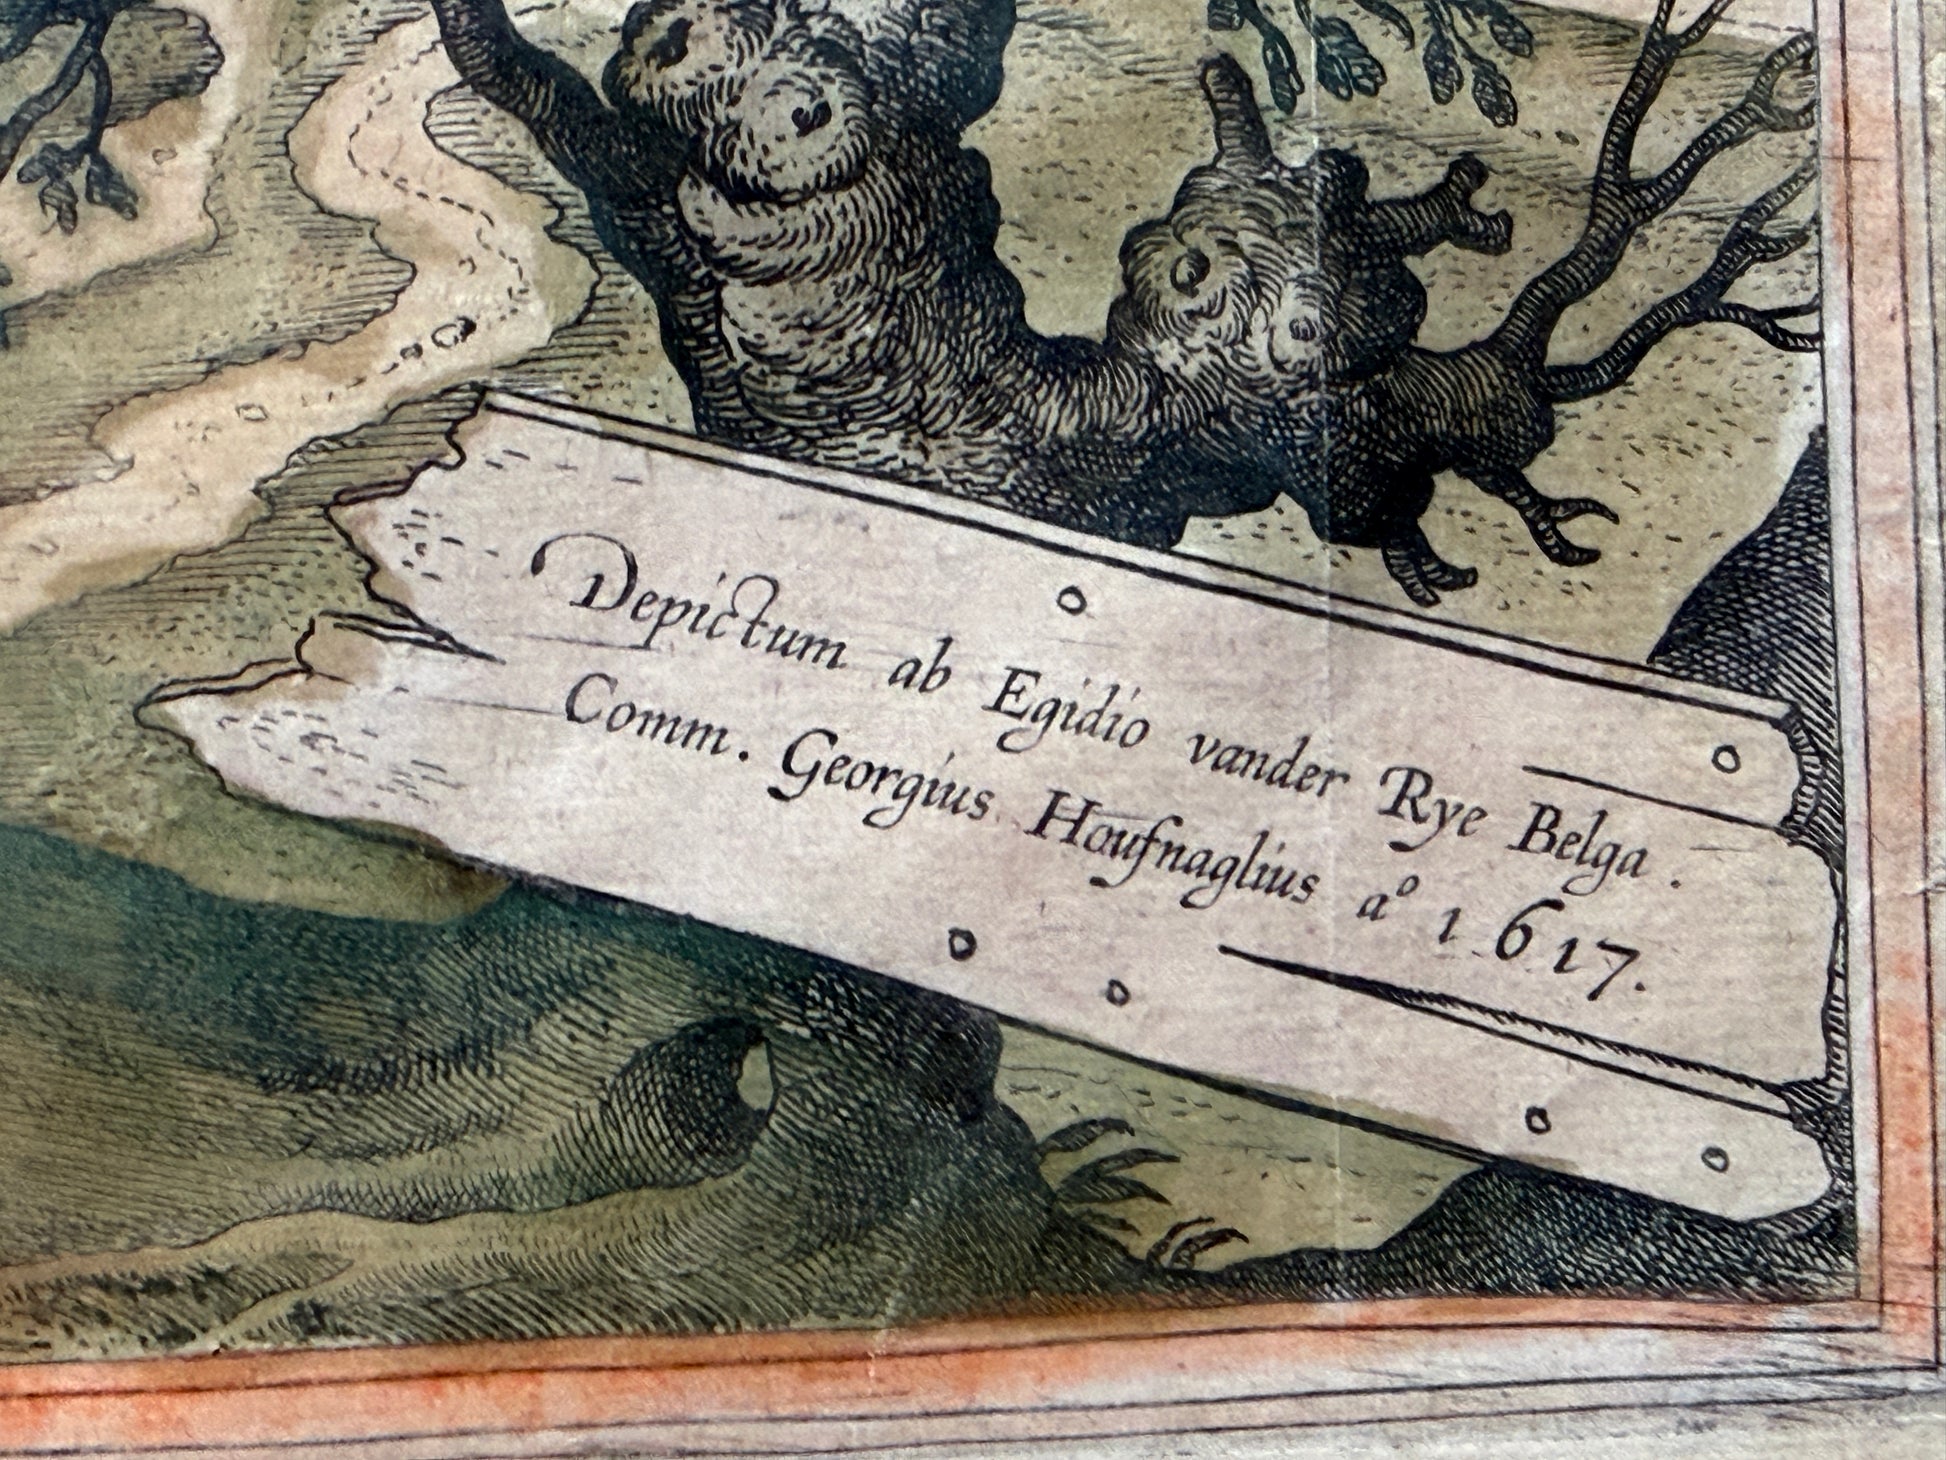 Depictum ab Egidio vander Rye Belga.
Comm. Georgius Houfnaglius aº 1617.